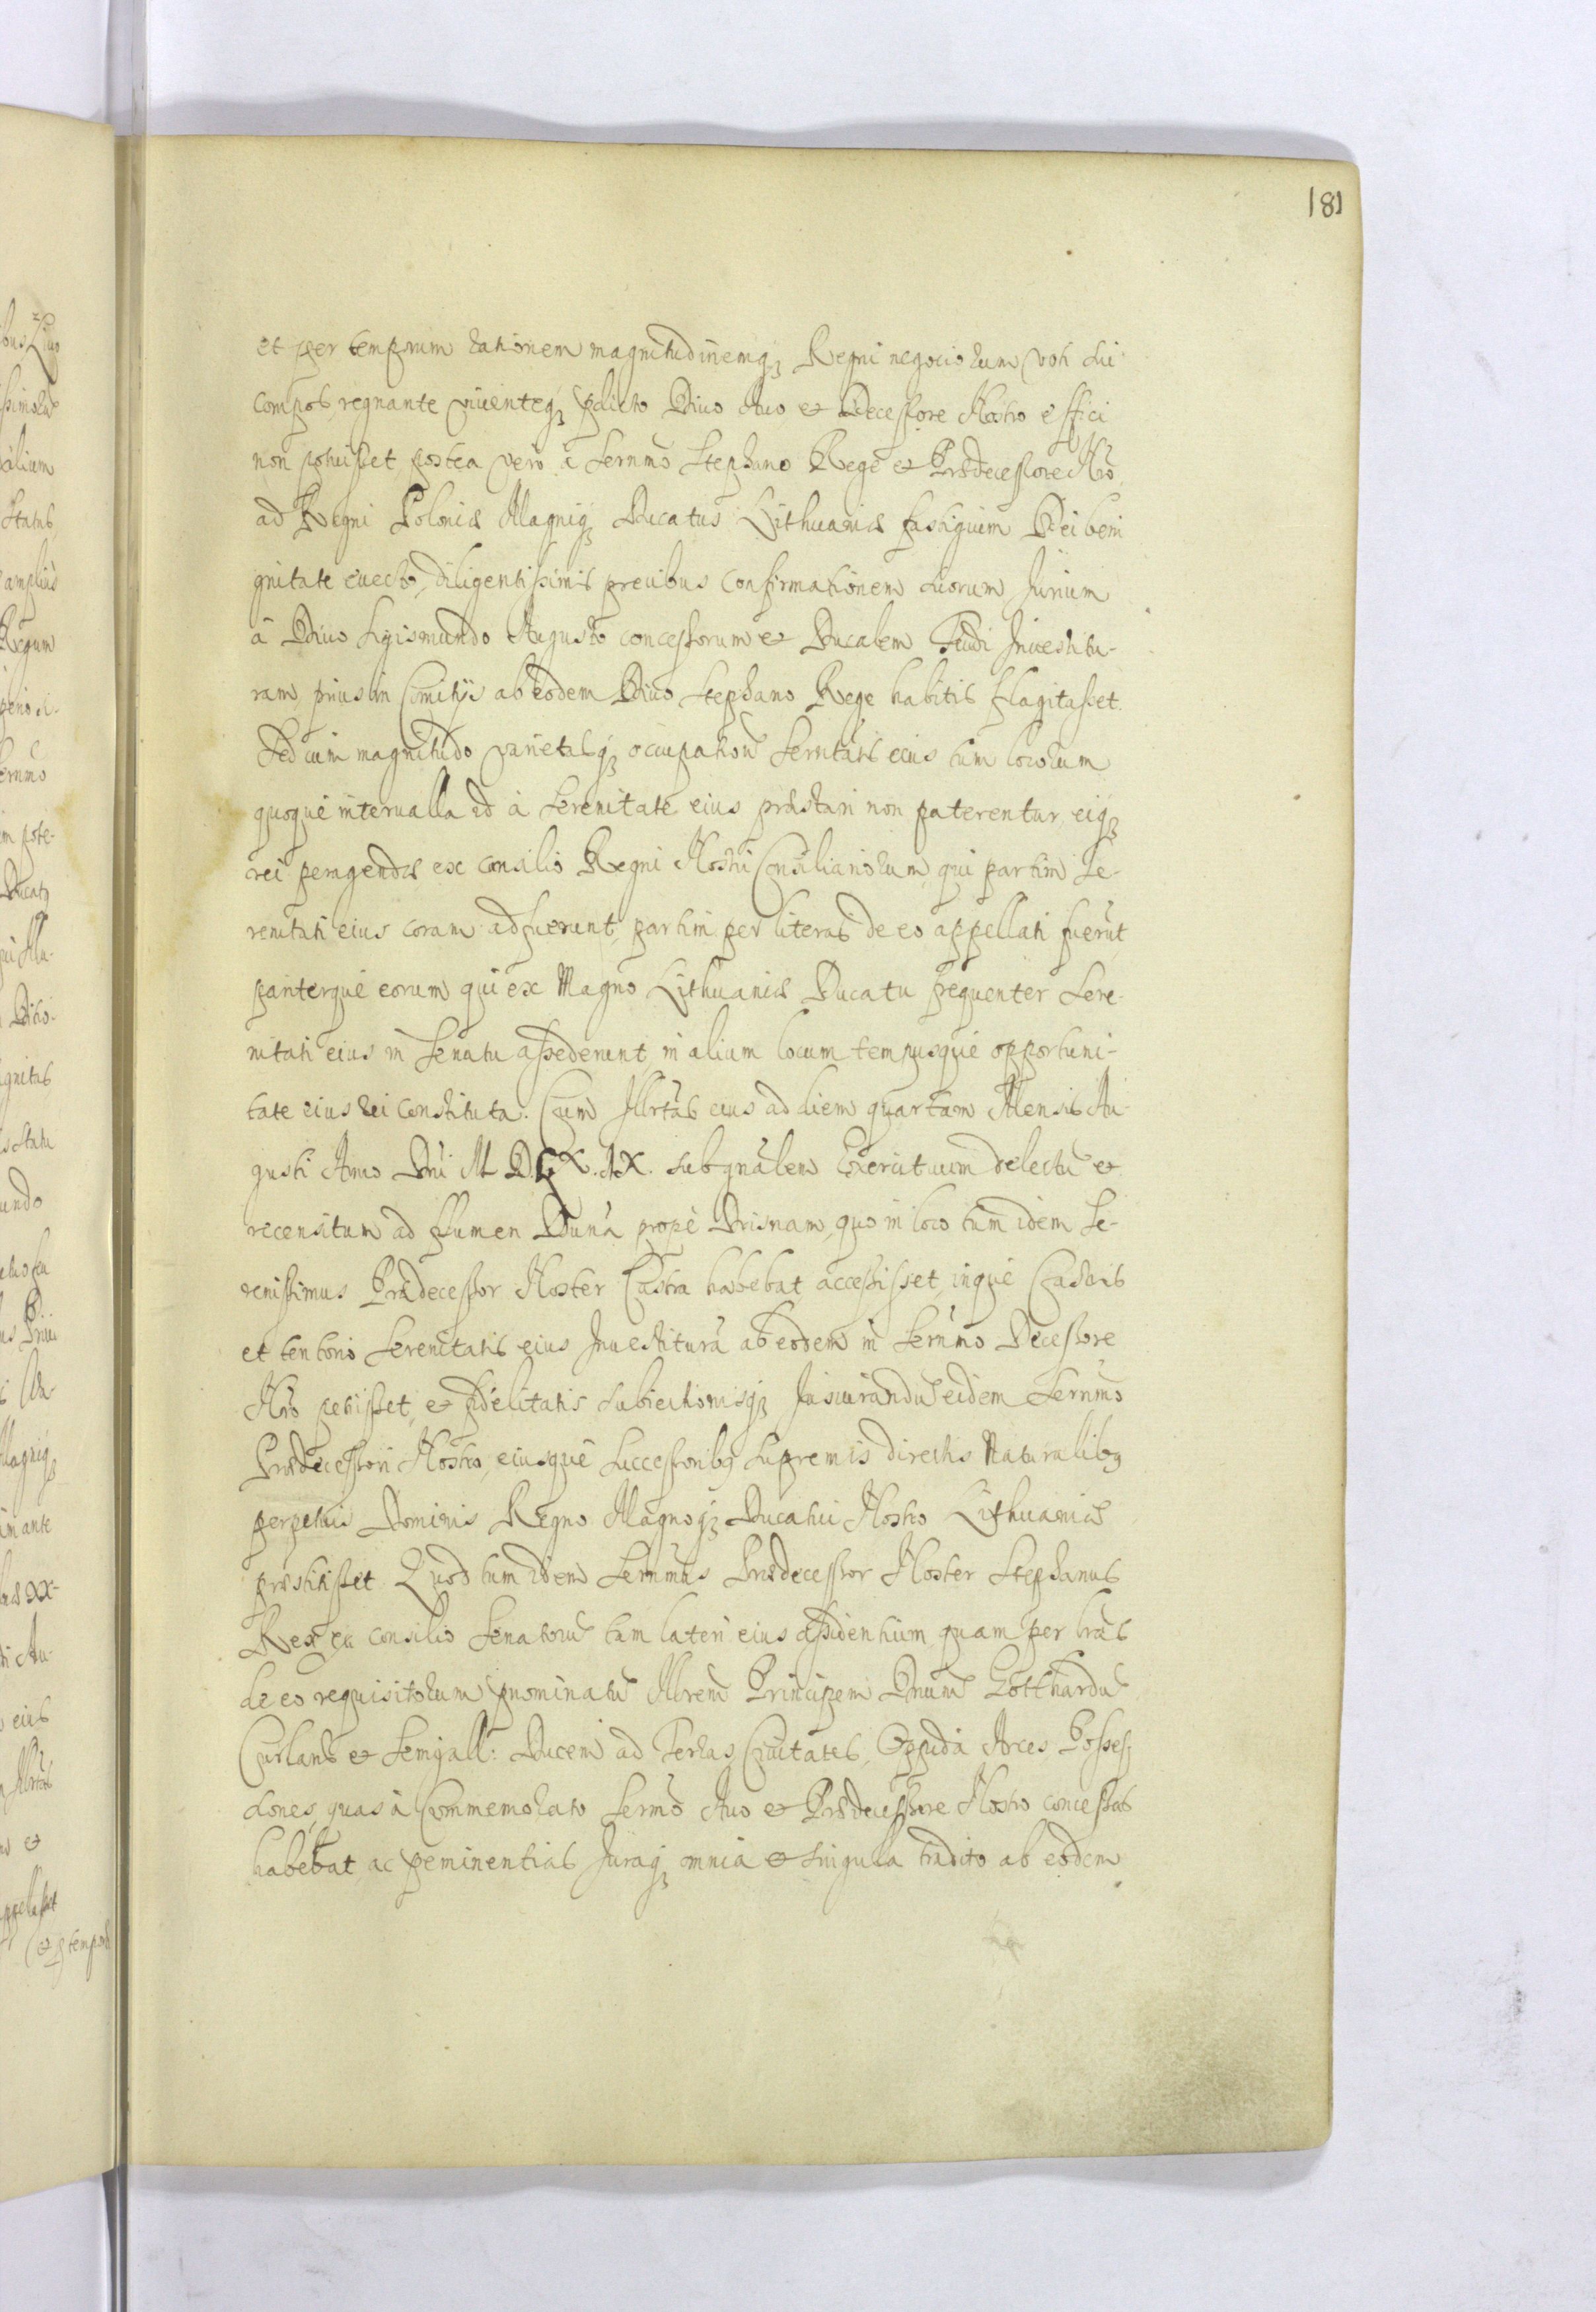 181
et per temporum rationem magnitudinemq; Regni negociorum voti sui
compos, regnante viventeq; pdicto Divo Avo et Decessore Nostro effici
non potuisset, postea vero à Sernmo Stephano Rege et Prædecessore Nro,
ad Regni Poloniæ Magniq; Ducatus Lithuaniæ fastigium Dei beni
gnitate evecto, diligentissimis precibus confirmationem suorum Jurium
à Divo Sigismundo Augusto concessorum et Ducalem Feudi Investitu-
ram, prius in Comitijs ab eodem Divo Stephano Rege habitis flagitasset.
Sed cum magnitudo varietasq; occupationũ Serntatis eius tum locorum
quoque intervalla id à Serenitate eius præstari non paterentur, eiq;
rei peragendæ ex consilio Regni Nostri Consiliariorum, qui partim Se-
renitati eius coram adfuerunt, partim per literas de eo appellati fuerũt
pariterque eorum qui ex Magno Lithuaniæ Ducatu frequenter Sere-
nitati eius in Senatu assederunt, in alium locum tempusque opportuni-
tate eius rei constituta. Cum Illrtas eius ad diem quartam Mensis Au-
gusti Anno Dni M D LXXIX. sub gnalem Exercituum delectũ et
recensitum ad flumen Duna prope Drisnam, quo in loco tum idem Se-
renissimus Prædecessor Noster Castra habebat, accessisset, inque Castris
et tentorio Serenitatis eius Investiturã ab eodem in Sernmo Decessore
Nro petisset, et fidelitatis subiectionisq; Jusiurandũ eidem Sernmo
Prædecessori Nostro, eiusque Successoribq Supremis directis Naturalibq
perpetuis Dominis Regno Magnoq; Ducatui Nostro Lithuaniæ
præstitisset. Quod tum idem Sernmus Prædecessor Noster Stephanus
Rex ex consilio Senatorũ tam lateri eius assidentium quam per lras
de eo requisitorum pnominatũ Illrem Principem Dnum Gotthardũ
Curlandiæ et Semigall: Ducem ad Terras, Civitates, Oppida Arces, Posses-
siones, quas à Commemorato Sermo Avo et Prædecessore Nostro concessas
habebat, ac peminentias Juraq; omnia et singula tradito ab eodem